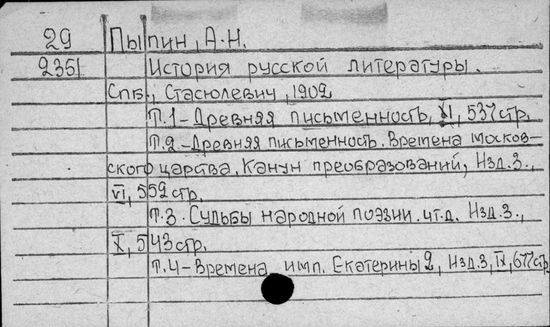 29 Пыпин, А.Н.
2351 История русской литературы.
Спб., Стасюлевич, 1902
Т.1-Древняя письменность, XI, 537 стр.
Т.2-Древняя письменность. Времена Москов-
ского царства. Канун преобразований, Изд.3.,
VI, 552 стр.
Т.3. Судьбы народной поэзии. и т.д. Изд.3.,
X, 543 стр.
Т.4-Времена имп. Екатерины 2, Изд.3, IX, 677 стр